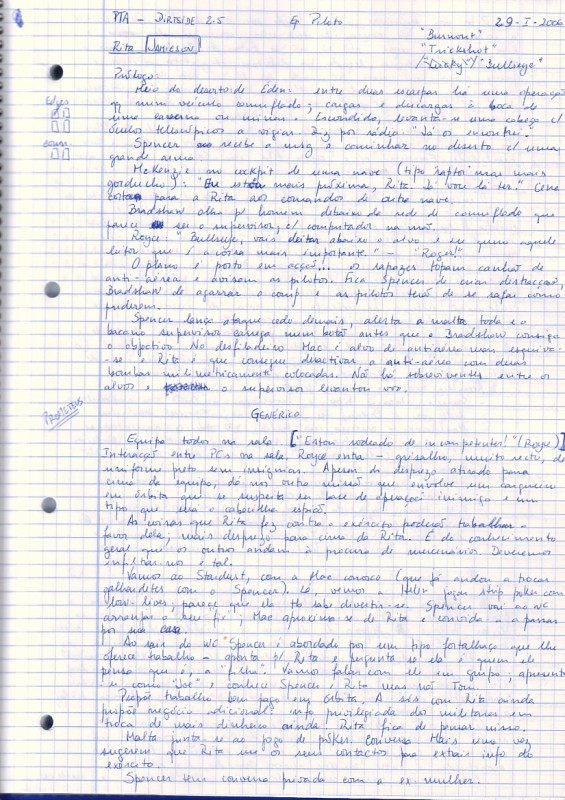 PTA - DIRTSIDE 2.5 Ep Piloto 29-I-2006
"Burnout"
"Trickshot"
Rita JAMIESON /"Lucky"/"Bullseye"
Prólogo:
Meio do deserto de Éden: entre duas escarpas há uma operação
num veículo camuflado; cargas e descargas à boca de
uma caverna ou mina. Escondido, levanta-se uma cabeça c/
óculos telescópicos a vigiar. Diz por rádio: "Já os encontrei.
Spencer recebe a msg a caminhar no deserto c/ uma
grande arma.
McKenzie no cockpit de uma nave (tipo raptor mas mais
gorducho): "Eu estou mais próxima, Rita. Já vou lá ter." Cena
corta para a Rita aos comandos de outra nave.
Bradshaw olha p/ homem debaixo da rede de camuflado que
parece ser o supervisor, c/ computador na mão.
Royce: "Bullseye, vais deitar abaixo o alvo e eu quero aquele
que é a coisa mais importante." - "Roger!"
O plano é posto em acção... os rapazes topam canhão de
anti-aérea e avisam as pilotos. Fica Spencer de criar distracção,
Bradshaw de agarrar o comp e as pilotos terão de se safar como
puderem.
Spencer lança ataque cedo demais, alerta a malta toda e o
bacano supervisor carrega num botão antes que o Bradshaw consiga
o objectivo. No desfiladeiro Mac é alvo de antiaérea mas esquiva-
-se e Rita é que consegue desactivar a anti-aérea com duas
bombas milimetricamente colocadas. Não há sobreviventes entre os
alvos e o supervisor levantou voo.
GENÉRICO
Equipa todos na sala ["Estou rodeado de incompetentes!" (Royce)]
Interacção entre PCs na sala. Royce entra - grisalho, muito recto, de
uniforme preto sem insígnias. Apesar do desprezo atirado para
cima da equipa, dá-nos outra missão que envolve um cargueiro
em órbita que se suspeita ser base de operação inimiga e um
tipo que é o cabecilha espião.
As coisas que Rita fez contra o exército poderão trabalhar a
favor dela; mais desprezo para cima da Rita. É do conhecimento
geral que os outros andam à procura de mercenários. Devemos
infiltrar-nos e tal.
Vamos ao Stardust, com a Mac conosco (que já andou a trocar
galhardetes com o Spencer). Lá, vemos a jogar strip poker com
low-lives, parece que ela sabe divertir-se. Spencer vai ao WC
Mac aproxima-se de Rita e convida-a a passar
por sua casa.
Ao sair do WC Spencer é abordado por um tipo fortalhaço que lhe
oferece trabalho - aponta p/ Rita e pergunta se ela é quem ele
pensa que é, a "filha". Vamos falar com ele em grupo, apresenta-
-se como "Joe" e conhece Spencer e Rita mas não Tom.
Propõe trabalho bem pago em órbita. A sós com Rita ainda
propõe negócio adicional: info privilegiada dos militares em
troca de mais dinheiro ainda. Rita fica de pensar nisso.
Malta junta-se ao jogo de póker. Conversa. Mais uma vez
sugerem que Rita use os seus contactos para extrair info do
exército.
Spencer tem conversa privada com a ex-mulher.